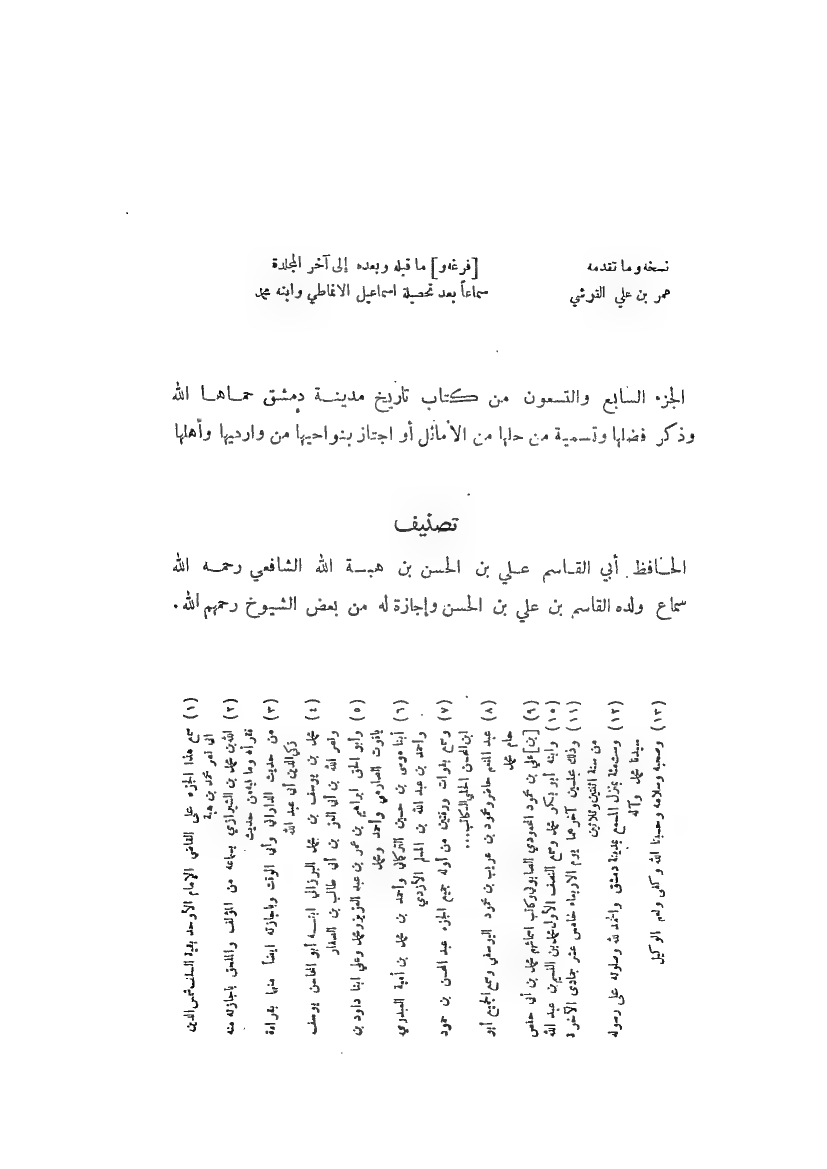 نسخه وما تقدمه
عمر بن علي القرشي
[فرغه و] ما قبله وبعده إلى آخر المجلدة
سماعاً بعد تحصيله اسماعيل الانماطي وابنه محمد
الجزء السابع والتسعون من كتاب تاريخ مدينة دمشق حماها الله
وذكر فضلها وتسمية من حلها من الأماثل أو اجتاز بنواحيها من وارديها وأهلها
تصنيف
الحافظ أبي القاسم علي بن الحسن بن هبة الله الشافعي رحمه الله
سماع ولده القاسم بن علي بن الحسن وإجازة له من بعض الشيوخ رحمهم الله.
(١) سمع هذا الجزء على القاضي الإمام الأوحد بقية السلف شمس الدين
أبي نصر محمد بن هبة
(٢) الله بن محمد بن الشيرازي بسماعه من المؤلف والملحق باجازته منه
بقراءة وما فيه من حديث
(٣) من حديث الداراني وأبي الوقت وباجازته ايضاً منها بقراءة
زكي الدين أبي عبد الله
(٤) محمد بن يوسف بن محمد البرزالي ابنه أبو المحاسن يوسف
ونصر الله بن أبي العز بن أبي طالب بن الصفار
(٥) وأبو الحق ابراهيم بن عمر بن عبد العزيز ومحمد وعلي ابنا داود بن
ياقوت الصارمي وأحمد ومحمد
(٦) أبنا موسى بن حسين التركماني وأحمد بن محمد بن أمية العبدري
وأحمد بن عبد الله بن المسلم الأزدي
(٧) وسمع بفوات ورقتين من أوله جميع الجزء عبد المحسن بن حمود
ابن المحسن الحلبي الكاتب...
(٨) عبد المنعم حاضر ومحمود بن عريب بن محمود اليوسفي وسمع الجميع أبو
حامد محمد
(٩) [بن] علي بن محمود المحمودي الصابوني وكاتب اسمائهم محمد بن أبي حفص
(١٠) وابنه أبو بكر محمد وسمع النصف الأول محمد بن عبد الله
(١١) وذلك بمجلسين آخرهما يوم الاربعاء خامس عشر جمادى الآخرة
من سنة اثنتين وثلاثين
(١٢) وستمئة بمنزل المسمع بمدينة دمشق والحمد لله وصلوته على رسوله
سيدنا محمد وآله
(١٣) وصحبه وسلامه وحسبنا الله وكفى ونعم الوكيل